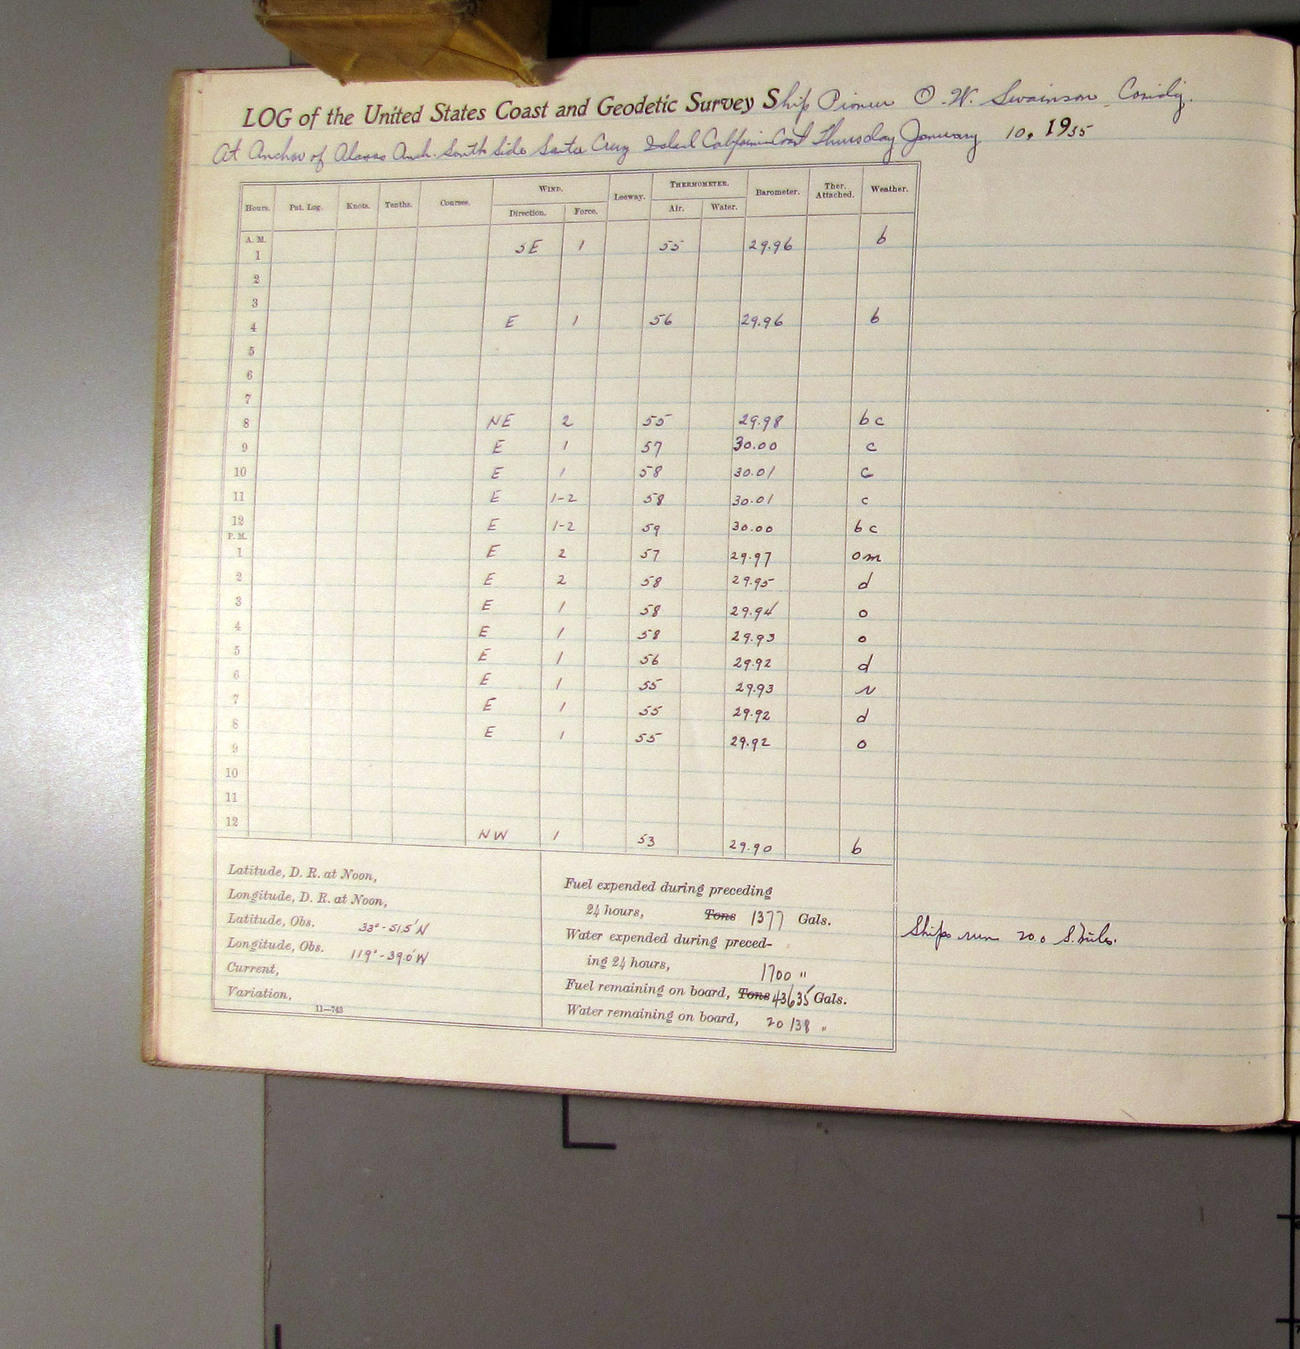 LOG of the United States Coast and Geodetic Survey Ship Pioneer O.W. Swainson Comdg.
At Anchor of Anch. South Side Santa Cruz Island California Coast Thursday January 10, 1935
Hours. Pat. Log. Knots. Tenths. Courses. WIND. Direction. Force. Leeway. THERMOMETER. Air. Water. Barometer. Ther. Attached. Weather.
A. M.
1 SE 1 55 29.96 b
2
3
4 E 1 56 29.96 b
5
6
7
8 NE 2 55 29.98 bc
9 E 1 57 30.00 c
10 E 1 58 30.01 c
11 E 1-2 58 30.01 c
12 E 1-2 59 30.00 bc
P. M.
1 E 2 57 29.97 om
2 E 2 58 29.95 d
3 E 1 58 29.94 o
4 E 1 58 29.93 o
5 E 1 56 29.92 d
6 E 1 55 29.93 r
7 E 1 55 29.92 d
8 E 1 55 29.92 o
9
10
11
12 NW 1 53 29.90 b
Latitude, D. R. at Noon,
Longitude, D. R. at Noon,
Latitude, Obs. 33°-51.5'N
Longitude, Obs. 119°-39.0'W
Current,
Variation,
11—763
Fuel expended during preceding
24 hours, Tons 1377 Gals.
Water expended during preced-
ing 24 hours, 1700 "
Fuel remaining on board, Tons 43635 Gals.
Water remaining on board, 20138 "
Ships run 20.0 S. Miles.